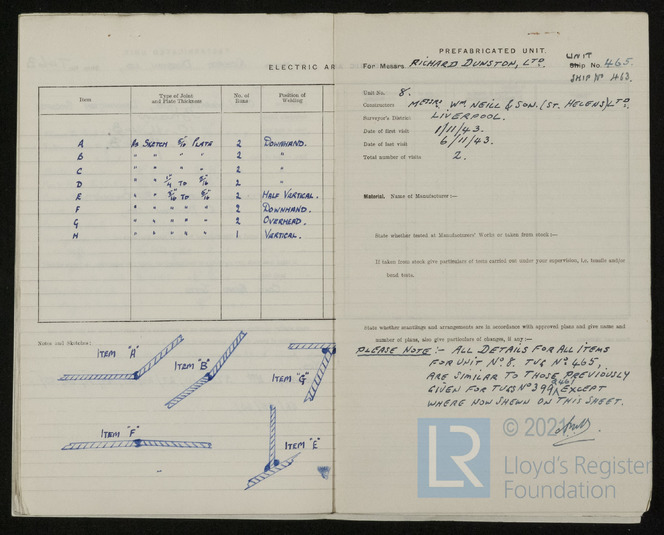 ELECTRIC AR
Item
Type of Joint and Plate Thickness
No. of Runs
Position of Welding
A As SKETCH 5/16 PLATE 2 DOWNHAND.
B " " " " 2 "
C " " " " 2 "
D " " 1/4 TO 5/16 2 "
E " " 5/16 TO 5/16 2 HALF VERTICAL.
F " " " " 2 DOWNHAND.
G " " " " 2 OVERHEAD.
H " " " " 1 VERTICAL.
Notes and Sketches:
ITEM "A"
ITEM "B"
ITEM "G"
ITEM "F"
ITEM "E"
PREFABRICATED UNIT.
For Messrs. RICHARD DUNSTON, LTD. UNIT Ship No. 465.
SHIP No 463.
Unit No. 8.
Constructors MESSRS. WM. NEILL & SON. (ST. HELENS) LTD.
Surveyor's District LIVERPOOL.
Date of first visit 1/11/43.
Date of last visit 6/11/43.
Total number of visits 2.
Material. Name of Manufacturer :—
State whether tested at Manufacturers' Works or taken from stock :—
If taken from stock give particulars of tests carried out under your supervision, i.e. tensile and/or
bend tests.
State whether scantlings and arrangements are in accordance with approved plans and give name and
number of plans, also give particulars of changes, if any :—
PLEASE NOTE :- ALL DETAILS FOR ALL ITEMS
FOR UNIT No. 8. TUG No. 465,
ARE SIMILAR TO THOSE PREVIOUSLY
GIVEN FOR TUGS No 399 & 461 EXCEPT
WHERE NOW SHEWN ON THIS SHEET.
© 2021
LR
Lloyd's Register
Foundation